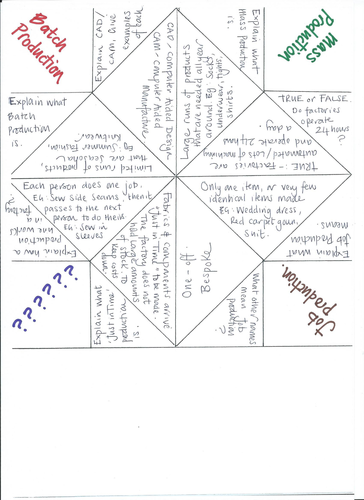 Batch
Production
Explain CAD/
CAM. Give
examples
of each
CAD - Computer Aided Design
CAM - Computer Aided
Manufacture
Explain what
Batch
Production
is.
Limited runs of products,
that are seasonal
Eg. Summer Fashion.
Knitwear
Mass
Production
Explain what
Mass Production
is.
Large runs of products
that are needed all year
around Eg. Socks,
underwear, tights,
shirts.
TRUE or FALSE
factories
operate
24 hours
a day?
TRUE - Factories are
automated / lots of machinery
and operate 24 hrs
Each person does one job.
Eg. sew side seams, then it
passes to the next
person to do their
Eg. sew in
sleeves
Explain how a
production
line works
in a
factory
Fabrics & components arrive
'Just in Time' to be made.
The factory does not
hold large amounts
of stock. To
keep costs
down.
Explain what
'Just in Time'
production
is.
??????
Only one item, or very few
identical items made
Eg: Wedding dress,
Red carpet gown,
Suit.
Explain what
Job Production
means
One-off.
Bespoke
What other names
mean Job
production?
Job
production.